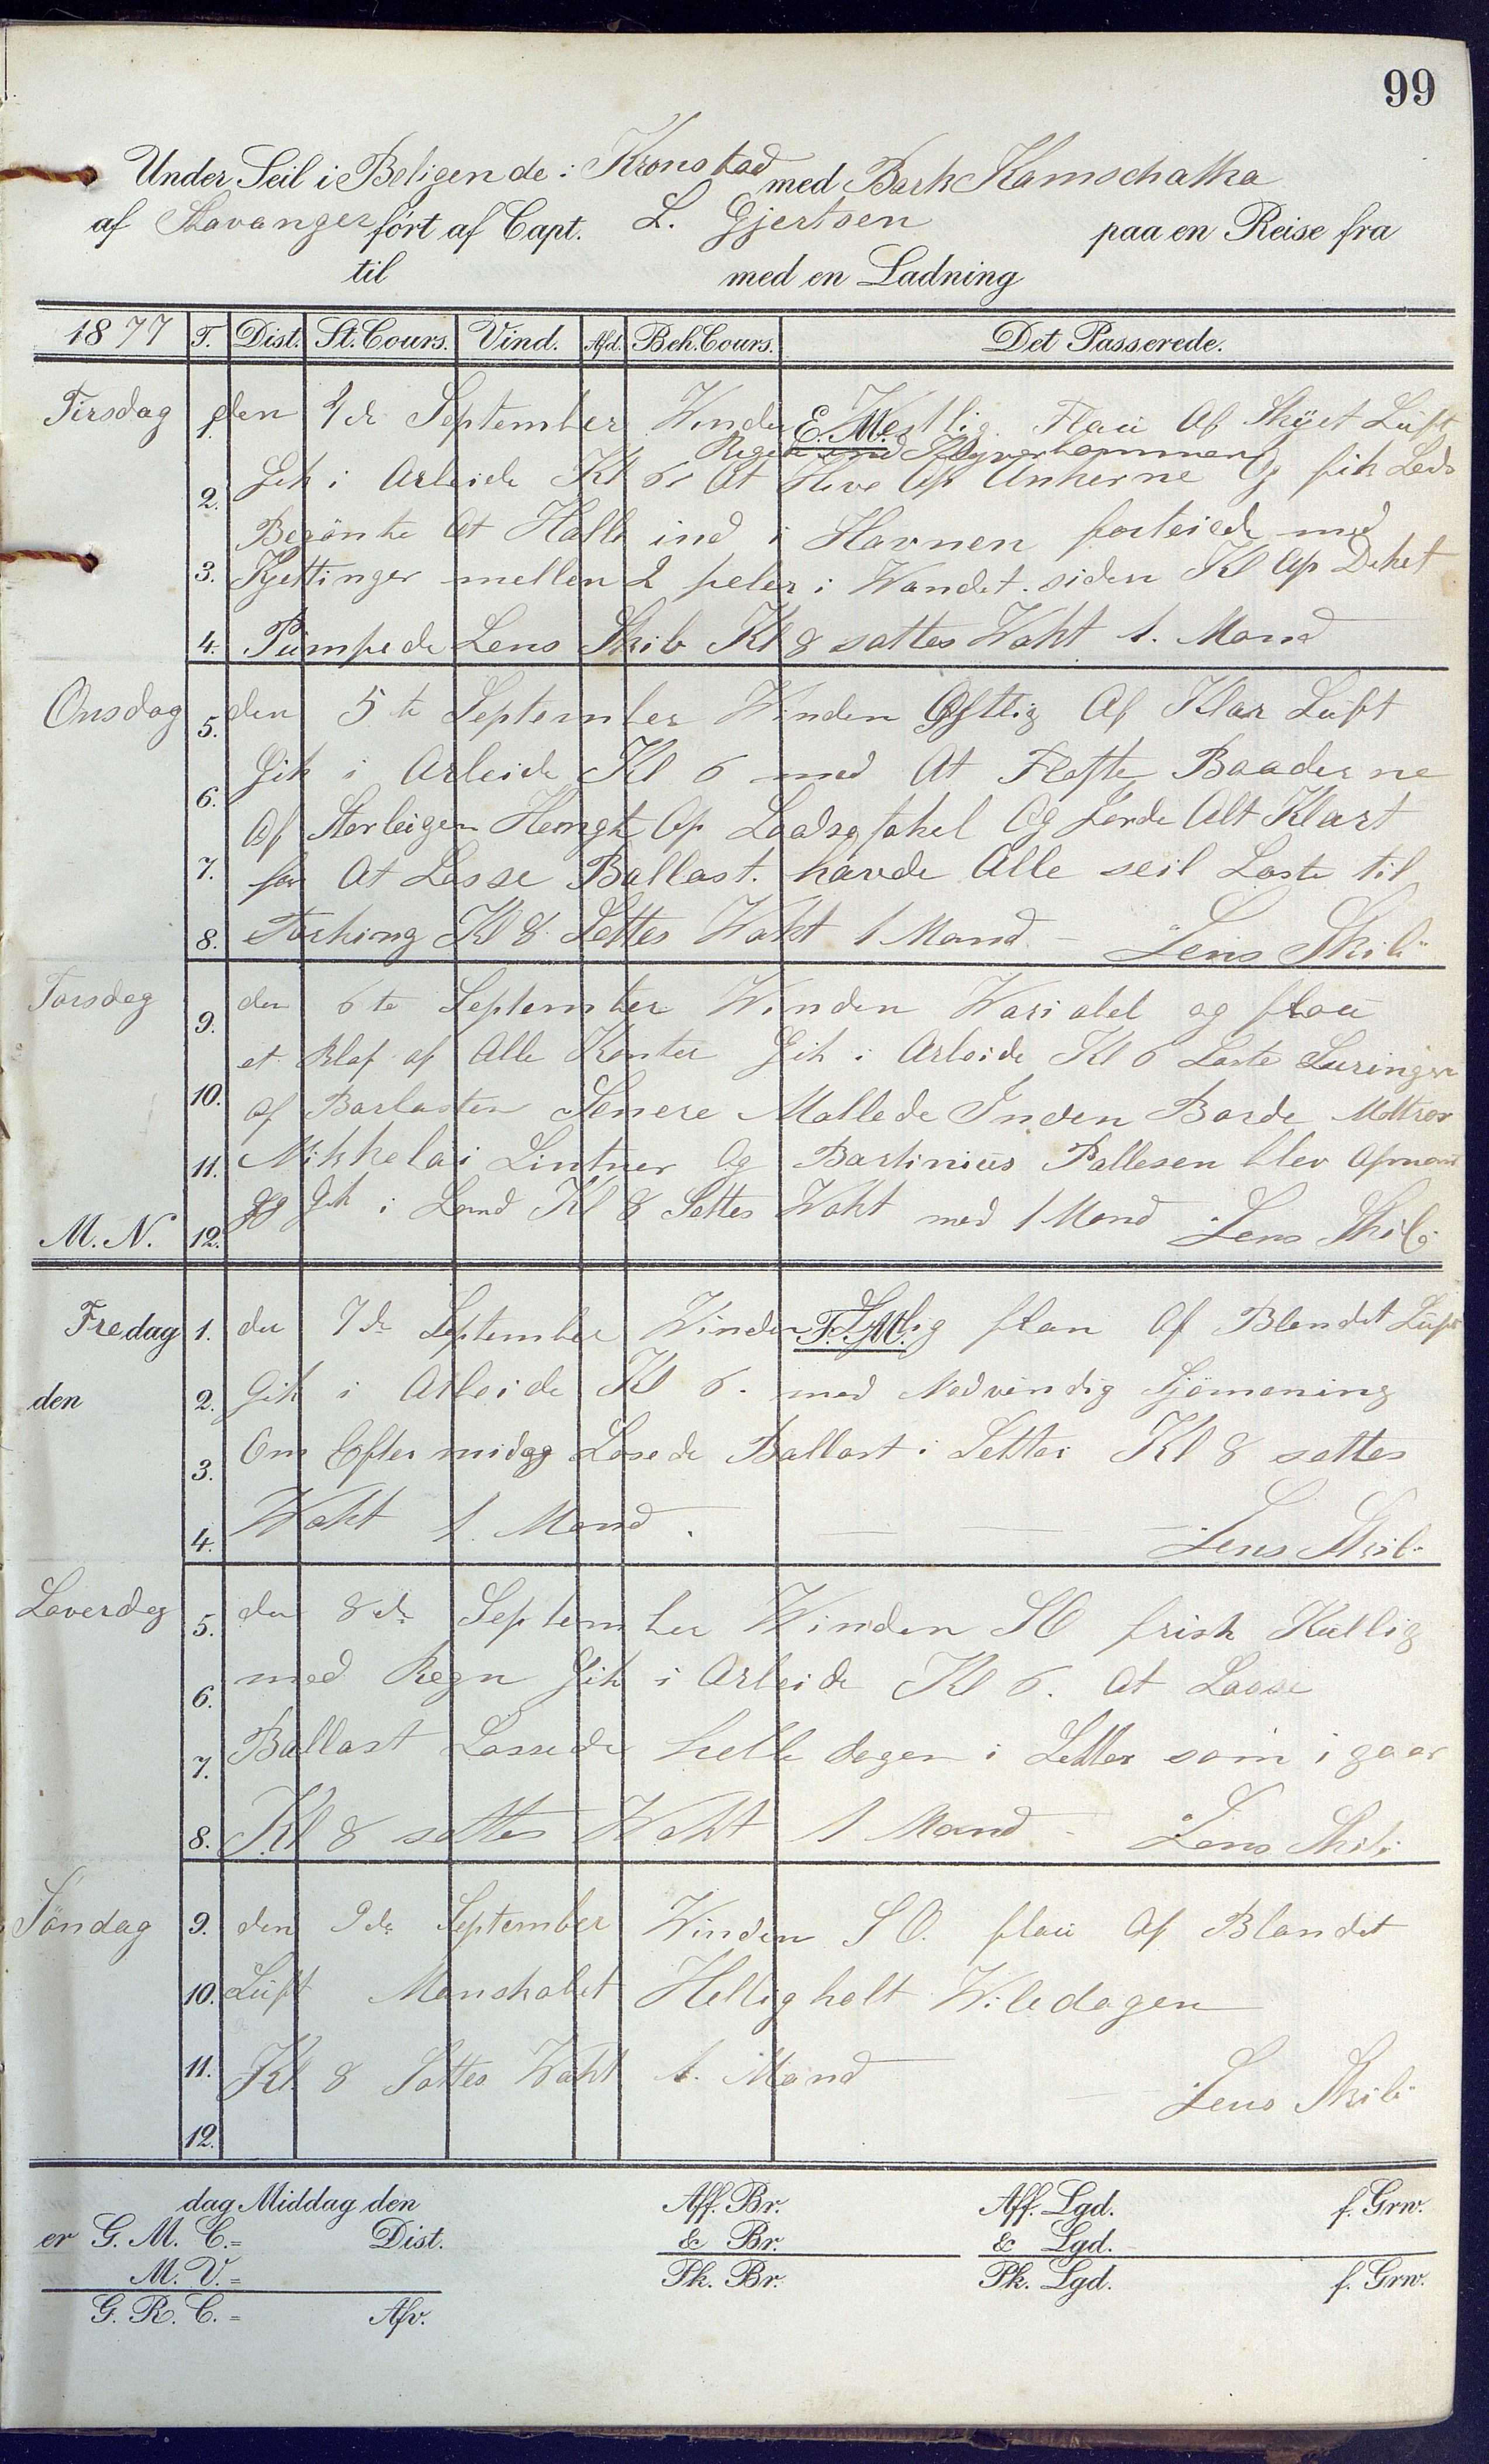 99
Under Seil i Beligende i Kronstad med Bark Kamschatka
af Stavanger fört af Capt. L. Gjertsen paa en Reise fra
til med en Ladning
1877 T. Dist. St. Cours. Vind. Afd. Beh. Cours. Det Passerede.
Tirsdag 1. den de September Winden E. M. Westlig Flau Af Skyet Luft
2. Gik i Arbeide Kl 6 At Hive Op Ankerne Og fik
Begönte At Halle ind i Havnen forteiede med
3. Kjettinger mellen 2 peler i Wandet. siden Kl Op Deket
4. Pumpede Lens Skib Kl 8 sattes Wakt 1. Mand
Onsdag 5. den 5te September Winden Ostlig Af Klar Luft
6. Gik i Arbeide Kl 6 med At Baaderne
Af Hengt Op Og Jorde Alt Klart
7. for At Losse Ballast. havde Alle seil Loste til
8. Törking Kl 8. Settes Wakt 1 Mand - Lens Skib
Torsdag 9. den 6te September Winden Wariabel og flau
et Blaf af Alle Kanter Gik i Arbeide Kl 6 Loste
10. af Barlasten Senere Mallede Inden Borde
11. Nikkolai Lintner Og Bartinius Pallesen blev
M. N. 12. Gik i Land Kl 8 Settes Wakt med 1 Mand Lens Skib
Fredag 1. den 7de September Winden F. M. flau Af Blandet Luft
den 2. Gik i Arbeide Kl 6. med Nodvendig Sjömaning
3. Om Eftermidag Losede Ballast i Letter Kl 8 sattes
4. Wakt 1. Mand. Lens Skib
Loverdag 5. den 8de September Winden SO frisk Kullig
6. med Regn Gik i Arbeide Kl 6. At Losse
7. Ballast Lossede helle dagen i Letter som i gaar
8. Kl 8 sattes Wakt 1 Mand - Lens Skib
Söndag 9. den 9de September Winden SO. flau Af Blandet
10. Luft Manskabet Helligholt Wiledagen
11. Kl 8 Sattes Wakt 1. Mand Lens Skib
12.
dag Middag den Aff. Br. Aff. Lgd. f. Grw.
er G. M. C.= Dist. & Br. & Lgd.
M. V.= Pk. Br. Pk. Lgd. f. Grw.
G. R. C.= Afv.